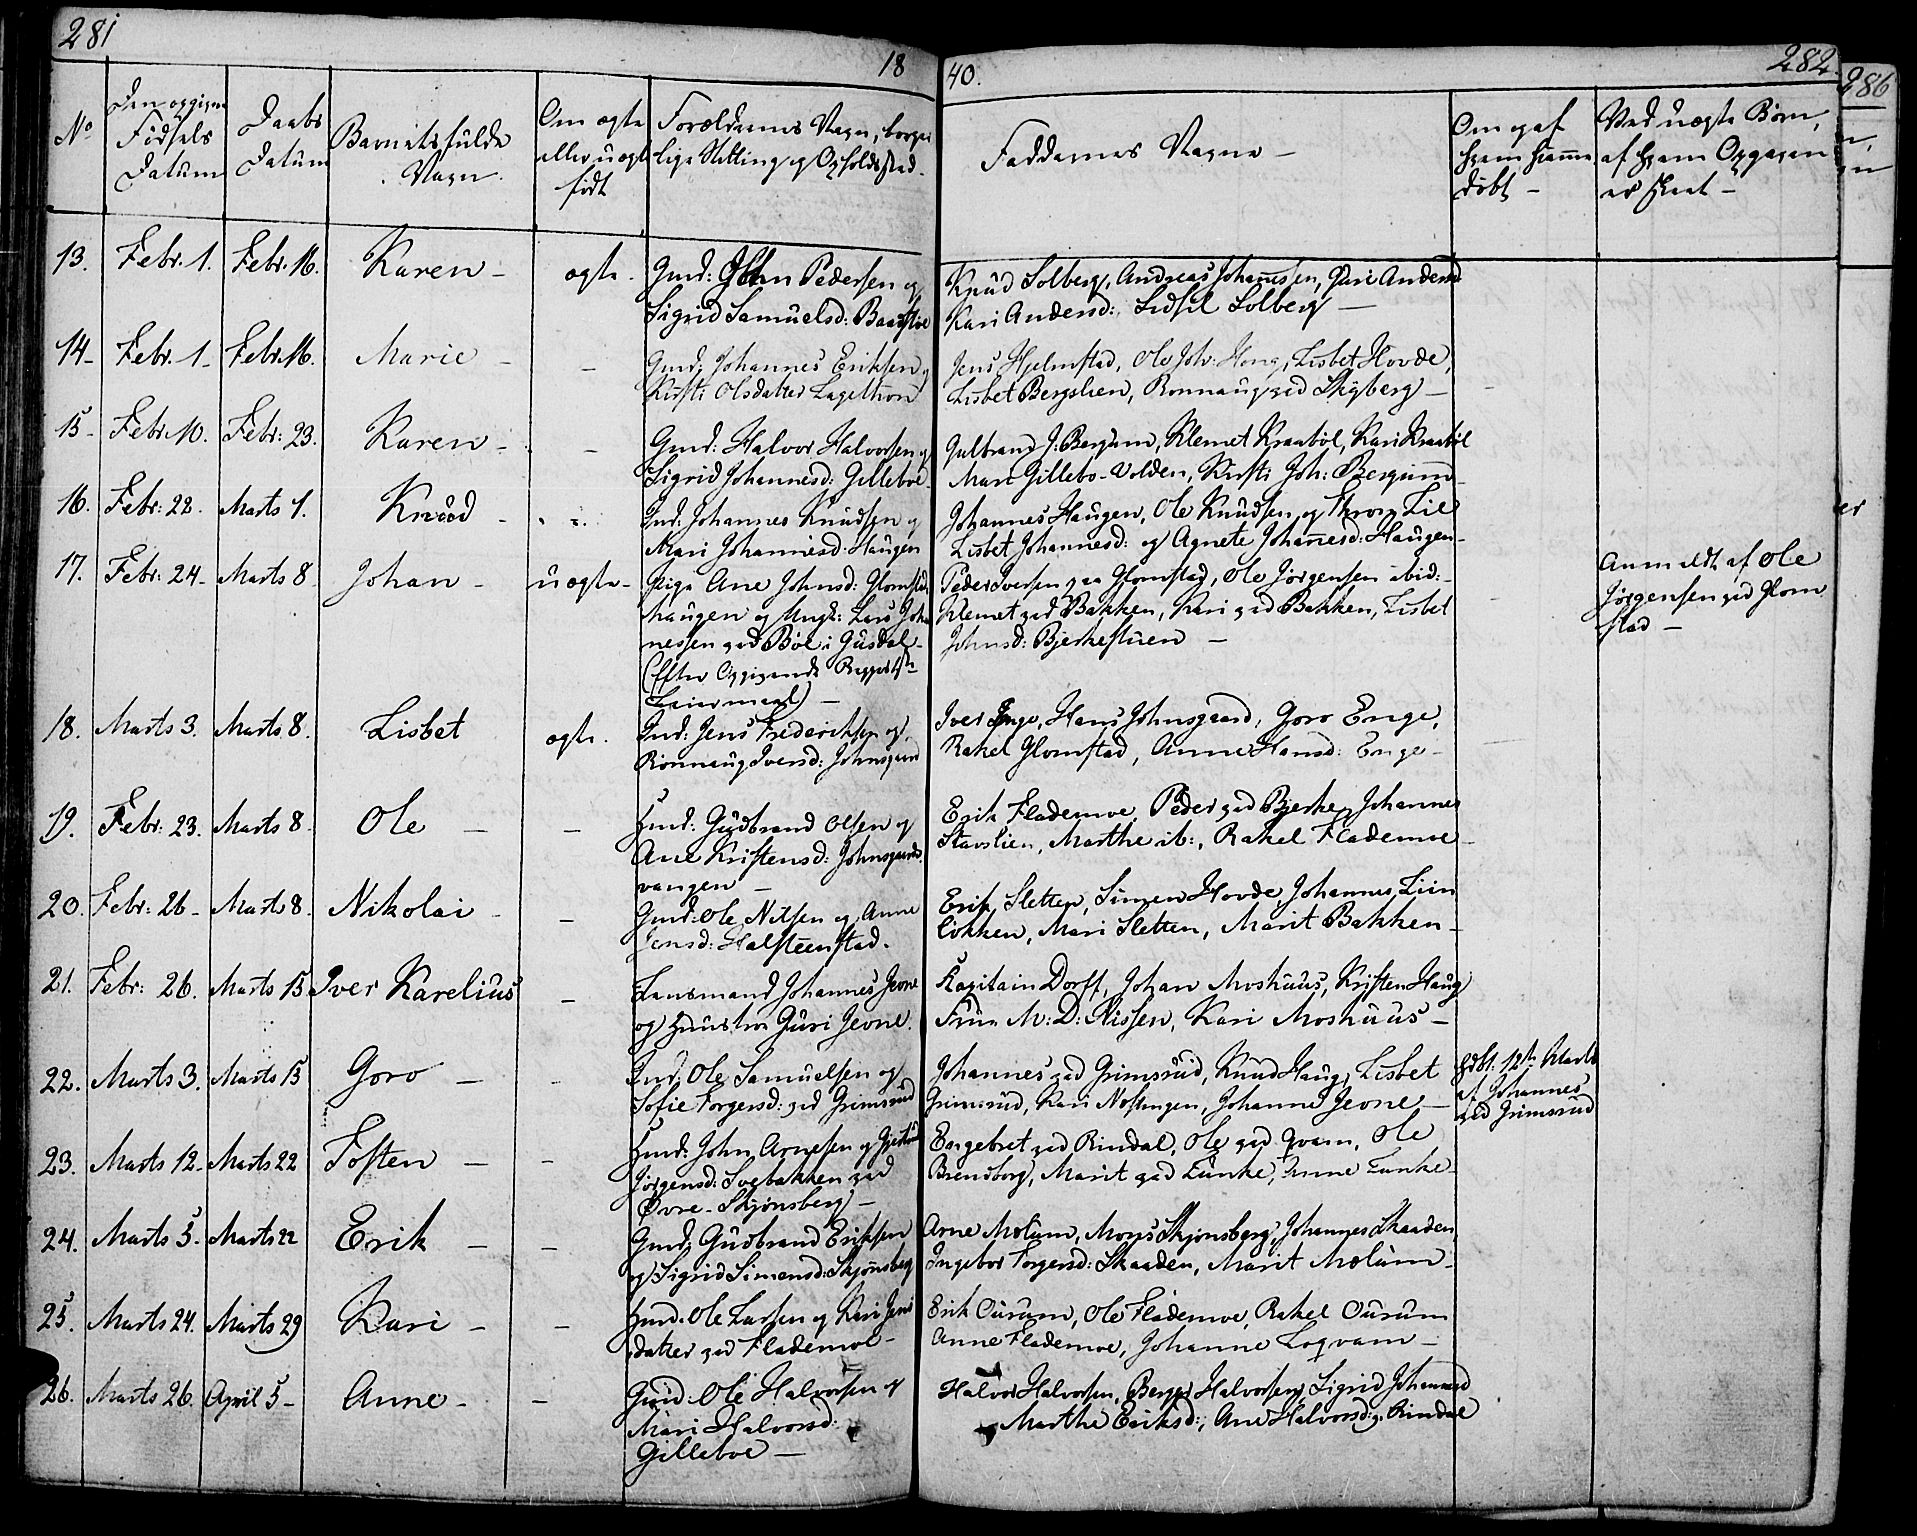 281
18
40.
282
286
No
Den opgivne Fødsels Datum
Daabs Datum
Barnets fulde Navn.
Om ægte eller uægte født
Forældrenes Navn, borgerlige Stilling og Opholdssted.
Faddernes Navne -
Om og af hvem hjemme døbt -
Ved uægte Børn, af hvem Opgaven er skeet -
13. Febr. 1. Febr. 16. Karen - ægte. Gmd: John Pedersen og
Sigrid Samuelsd: Baarstve
Knud Solberg, Andreas Johannesen, Guri Andersd
Kari Andersd:, Sidsel Solberg -
14- Febr. 1- Febr. 16. Marie - - Gmd: Johannes Eriksen og
Kirsti Olsdatter
Jens Hjelmstad, Ole Joh: Lisbet Hovde,
Lisbet Bergslien, Ronnaug ved Skyberg -
15- Febr. 10. Febr: 23. Karen - - Gmd: Halvor Halvorsen og
Sigrid Johannesd: Gilleboe
Gulbrand J. Bergum, Klemet Kraabøl, Kari Kraabøl
Mari Gillebo-Volden, Kirsti Joh: Bergum
16. Febr: 22. Marts 1. Knud - Ind: Johannes Knudsen og
Mari Johannesd: Haugen
Johannes Haugen, Ole Knudsen og Thron Lie
Lisbet Johannesd: og Agnete Johannesd: Haugen-
17. Febr: 24- Marts 8 Johan - uægte- Pige Ane Johnsd: Glomstad
haugen og Ungk: Lars Joha
nessen ved Bøe i Gusdal-
(Efter Opgivende
Leiermaal) -
Peder Iversen paa Glomstad, Ole Jørgensen ibid:-
Klemet ved Bakken, Kari ved Bakken, Lisbet
Johnsd: Bjerkestuen -
Anmeldt af Ole
Jørgensen ved Glom
stad -
18. Marts 3. Marts 8. Lisbet ægte. Ind: Jens Frederiksen og
Ronnaug Iversd: Johnsgaard
Iver Enge, Hans Johnsgaard, Goro Enge,
Rakel Glomstad, Anne Hansd: Enge-
19. Febr: 23. Marts 8 Ole - - Hmd: Gudbrand Olsen og
Ane Kristensd: Johnsgaards
vangen -
Erik Flademoe, Peder ved Bjerke, Johannes
Stavslien, Marthe ib:, Rakel Flademoe-
20. Febr: 26- Marts 8. Nikolai - - Gmd: Ole Nilsen og Anne
Jensd: Halsteenstad.
Erik Sletten, Simen Hovde, Johannes Liin
løkken, Mari Sletten, Marit Bakken-
21. Febr: 26. Marts 15 Iver Karelius - Lensmand Johannes Jevne
og Huustro Guri Jevne.
Kapitain Dorff, Johan Moshuus, Kristen Haug
Frue M: D: Nissen, Kari Moshuus-
22. Marts 3. Marts 15 Goro - - Ind: Ole Samuelsen og
Sofie Torgersd: ved Grimsrud
Johannes ved Grimsrud, Knud Haug, Lisbet
Grimsrud, Kari Johanne Jevne -
Hdbt: 12te Marts
af Johannes
ved Grimsrud
23. Marts 12- Marts 22 Tosten - - Hmd: John Arnesen og
Jørgensd: Svebakken ved
Øvre-Skjønsberg -
Engebret ved Rindal, Ole ved Qvam, Ole
Brendborg, Marit ved Lunke, Anne Lunke-
24. Marts 5- Marts 22 Erik - - Gmd: Gudbrand Eriksen
og Sigrid Simensd: Skjønsberg
Arne Molum, Mons Skjønsberg, Johannes Skaaden
Ingebor Torgersd: Skaaden, Marit Molum-
25. Marts 24. Marts 29 Kari - - Hmd: Ole Larsen og Kari Jens
datter ved Flademoe-
Erik Ourum, Ole Flademoe, Rakel Ourum
Anne Flademoe, Johanne Loqvam-
26. Marts 26. April 5- Anne - - Gmd: Ole Halvorsen og
Mari Halvorsd:
Gilleboe -
Halvor Halvorsen, Halvorsen, Sigrid Johannesd
Marthe Eriksd:, Ane Halvorsd: Rindal